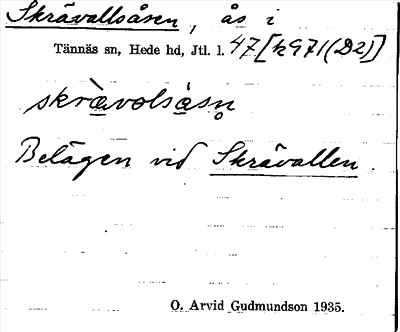 Skrävallsåsen, ås i
Tännäs sn, Hede hd, Jtl. l. 47[h971(D2)]
skràvolsåsn̥
Belägen vid Skrävallen.
O. Arvid Gudmundson 1935.